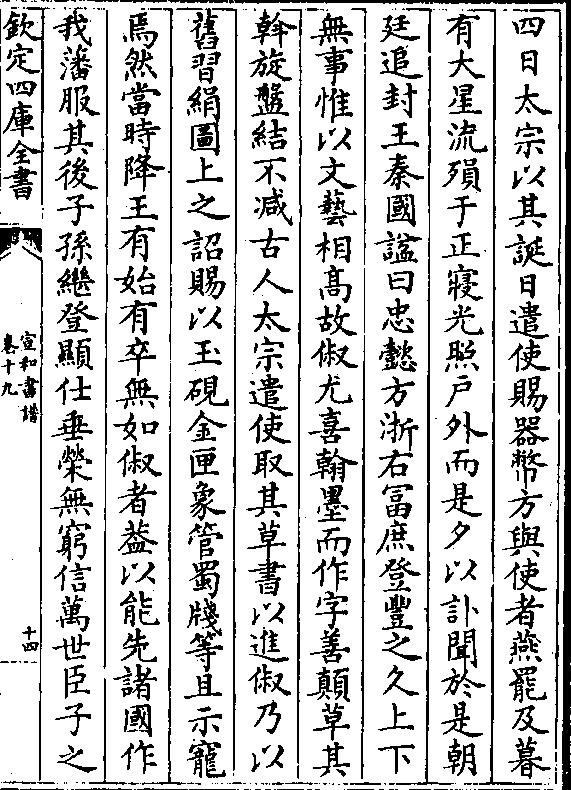 四日太宗以其誕日遣使賜器幣方與使者燕罷及暮
有大星流殞于正寢光照戶外而是夕以訃聞於是朝
廷追封王秦國諡曰忠懿方浙右富庶登豐之久上下
無事惟以文藝相髙故俶尤喜翰墨而作字善顛草其
斡旋盤結不减古人太宗遣使取其草書以進俶乃以
舊習絹圖上之詔賜以玉硯金匣象管蜀牋等且示寵
焉然當時降王有始有卒無如俶者葢以能先諸國作
我藩服其後子孫繼登顯仕垂榮無窮信萬世臣子之
欽定四庫全書
宣和書譜
卷十九
十四